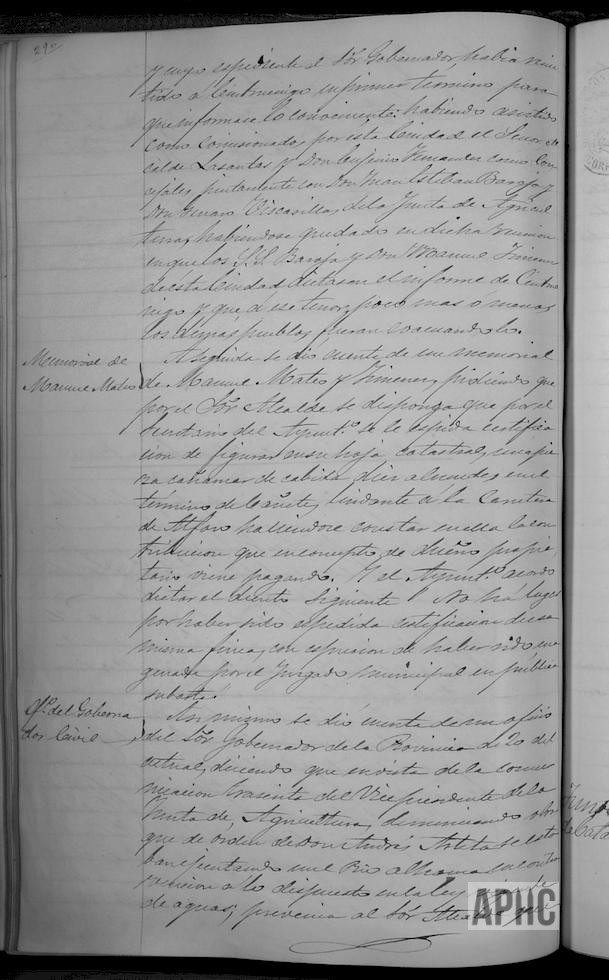 290
y cuyo espediente el Sor. Gobernador habia remi
tido a Cintruenigo en primer termino para
que informase lo conveniente: habiendo asistido
como Comisionados por esta Ciudad el Señor Al
calde Lasantas y Don Eugenio Fernandez como Con
cejales juntamente con Don Juan Esteban Baroja y
Don Genaro Viscasillas de la Junta de Agricul
tura, habiendose quedado en dicha reunion
en que los S.S. Baroja y Don Manuel Jimenez
de esta Ciudad dictasen el informe de Cintrue
nigo y que a ese tenor, poco mas o menos,
los demas pueblos, fueran evacuandolo.
Memorial de
Manuel Mateo
A seguida se dio cuenta de un memorial
de Manuel Mateo y Jimenez, pidiendo que
por el Sor. Alcalde se disponga que por el
Secretario del Ayunt.o se le espida certifica
cion de figurar en su hoja catastral, una pie
za cañamar de cabida diez almudes en el
término de Cañete, lindante a la Carretera
de Alfaro haciendose constar en ella la con
tribucion que en concepto de dueño propie
tario viene pagando. Y el Ayunt.o acordo
dictar el decreto siguiente "No ha lugar
por haber sido espedida certificacion de esa
misma finca, con espresion de haber sido ena
genada por el Juzgado municipal en publica
subasta."
Of.o del Goberna
dor Civil
Asi mismo se dio cuenta de un oficio
del Sor. Gobernador de la Provincia de 20 del
actual, diciendo que en vista de la comu
nicacion trascrita del Vicepresidente de la
Junta de Agricultura, denunciando obras
que de orden de Don Andrés Arteta se esta
ban ejecutando en el Rio Alhama en contra
vencion a lo dispuesto en la ley
de aguas, prevenia al Sor. Alcalde que
APHC